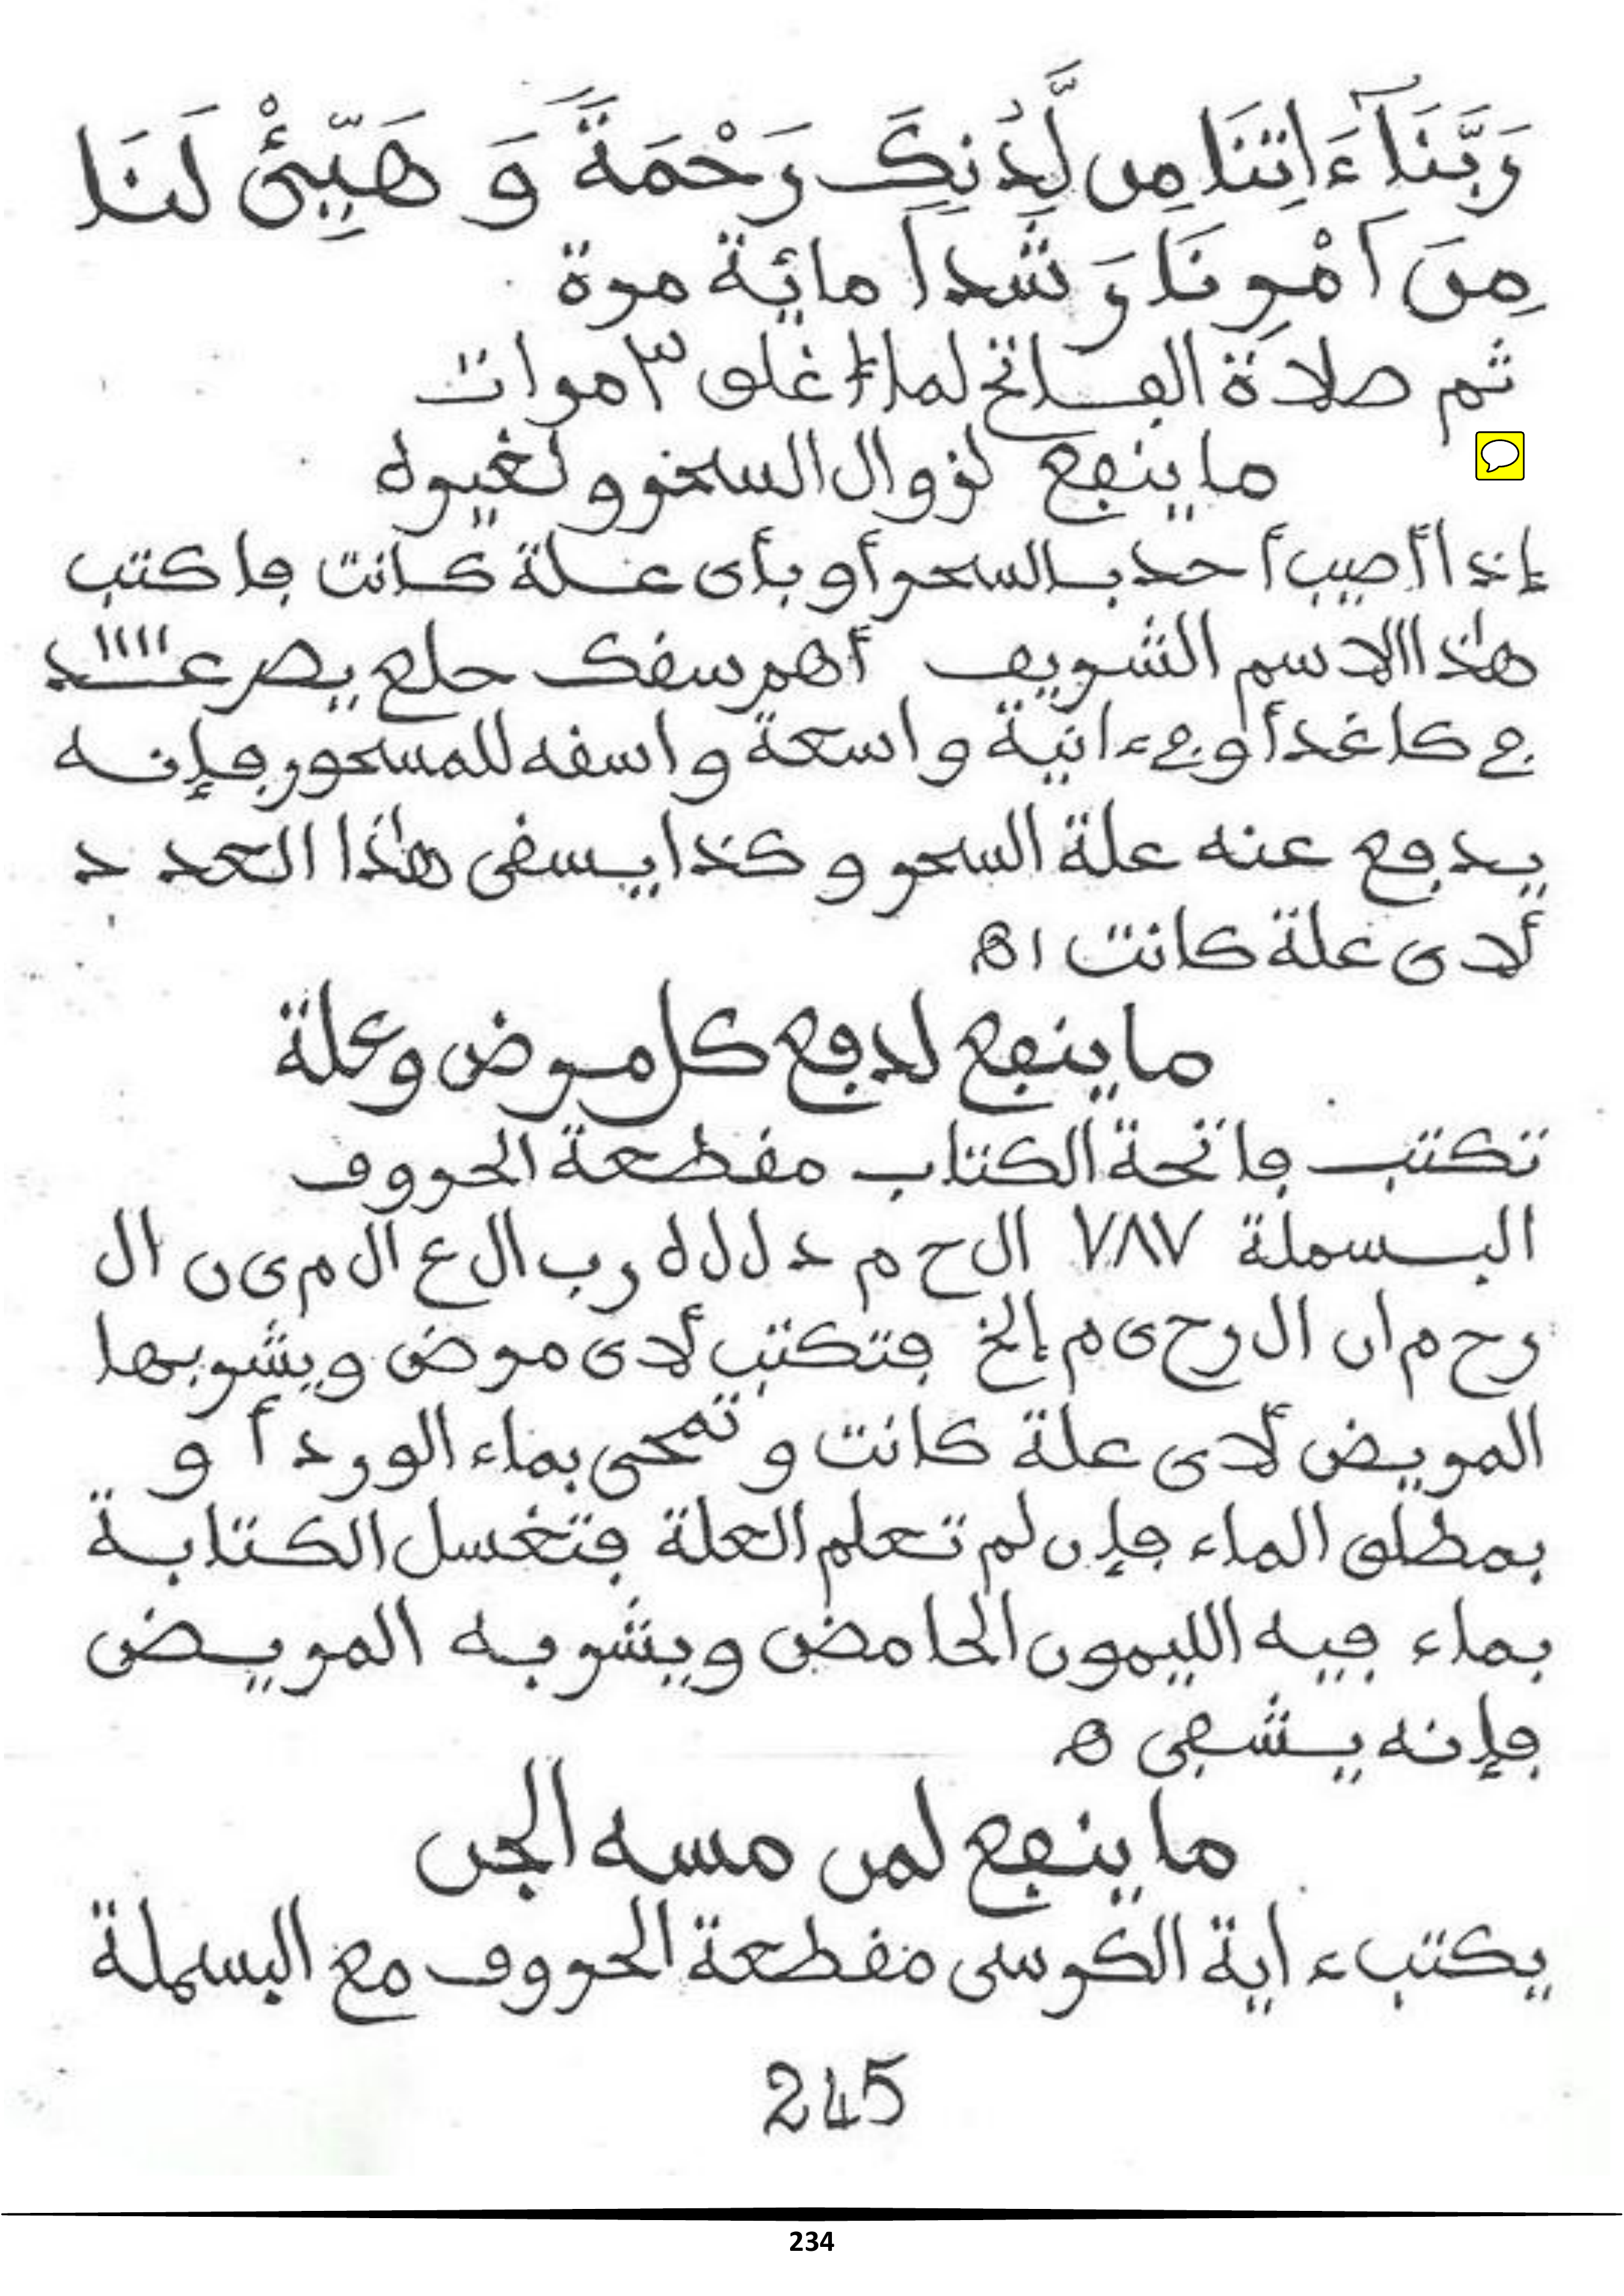 رَبَّنَآ ءَاتِنَا مِن لَّدُنكَ رَحْمَةً وَ هَيِّئْ لَنَا
مِنَ اَمْرِنَا رَشَداً مائة مرة
ثم صلاة الفاتح لما اغلق ٣ مرات
ما ينفع لزوال السحر و لغيره
إذا أصيب أحد بالسحر أو بأي علة كانت فاكتب
هذا الاسم الشريف أهم سقك حلع يص
في كاغد أو في ءانية واسعة واسقه للمسحور فإنه
يدفع عنه علة السحر و كذا يسقى هذا العدد
لأي علة كانت اه
ما ينفع لدفع كل مرض وعلة
تكتب فاتحة الكتاب مقطعة الحروف
البسملة ٧٨٧ ال ح م د ل ل ه ر ب ال ع ال م ي ن ال
ر ح م ا ن ال ر ح ي م إلخ فتكتب لأي مرض ويشربها
المريض لأي علة كانت و تمحى بماء الورد أ و
بمطلق الماء فإن لم تعلم العلة فتغسل الكتابة
بماء فيه الليمون الحامض ويشربه المريض
فإنه يشفى ه
ما ينفع لمن مسه الجن
يكتب ءاية الكرسي مقطعة الحروف مع البسملة
245
234